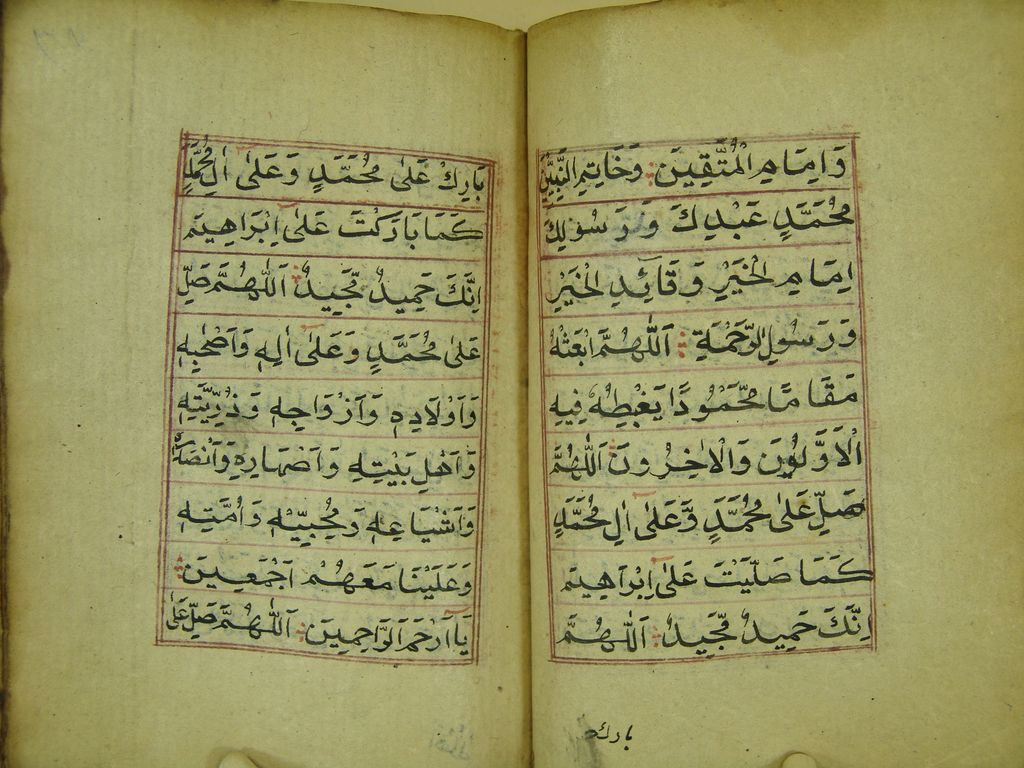 وَاِمَامِ الْمُتَّقِينَ ؞ وَخَاتِمِ النَّبِيِّنَ
مُحَمَّدٍ عَبْدِكَ وَرَسُولِكَ
اِمَامِ الْخَيْرِ وَقَائِدِ الْخَيْرِ
وَرَسُولِ الرَّحْمَةِ ؞ اَللّٰهُمَّ ابْعَثْهُ
مَقَامًا مَّحْمُودًا يَغْبِطُهٗ فِيهِ
الْاَوَّلُونَ وَالْاٰخِرُونَ اَللّٰهُمَّ
صَلِّ عَلٰى مُحَمَّدٍ وَّعَلٰى اٰلِ مُحَمَّدٍ
كَمَا صَلَّيْتَ عَلٰى اِبْرَاهِيمَ
اِنَّكَ حَمِيدٌ مَّجِيدٌ ؞ اَللّٰهُمَّ
بارك
بَارِكْ عَلٰى مُحَمَّدٍ وَعَلٰى اٰلِ مُحَمَّدٍ
كَمَا بَارَكْتَ عَلٰى اِبْرَاهِيمَ
اِنَّكَ حَمِيدٌ مَّجِيدٌ ؞ اَللّٰهُمَّ صَلِّ
عَلٰى مُحَمَّدٍ وَعَلٰى اٰلِهٖ وَاَصْحٰبِهٖ
وَاَوْلَادِهٖ وَاَزْوَاجِهٖ وَذُرِّيَّتِهٖ
وَاَهْلِ بَيْتِهٖ وَاَصْهَارِهٖ وَاَنْصَارِهٖ
وَاَشْيَاعِهٖ وَمُحِبِّيْهِ وَاُمَّتِهٖ
وَعَلَيْنَا مَعَهُمْ اَجْمَعِينَ ؞
يَا اَرْحَمَ الرَّاحِمِينَ ؞ اَللّٰهُمَّ صَلِّ عَلٰى